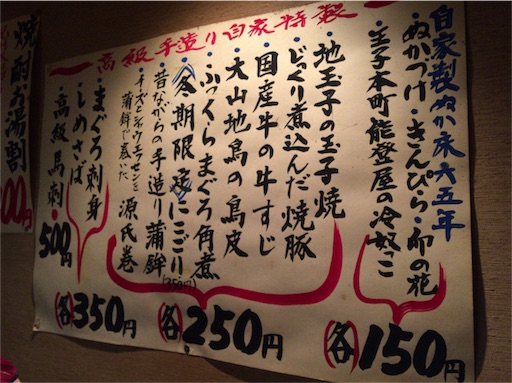 高級手造り自家特製
自家製ぬか床六五年
・ぬかづけ・きんぴら・卯の花
・王子本町能登屋の冷奴っこ
各150円
・地玉子の玉子焼
・じっくり煮込んだ焼豚
・国産牛の牛すじ
・大山地鳥の鳥皮
・ふっくらまぐろ角煮
冬期限定にこごり(350円)
・昔ながらの手造り蒲鉾
源氏巻
蒲鉾で巻いた
各250円
・まぐろ刺身
・しめさば
各350円
・高級馬刺・500円
焼酎お湯割
00円